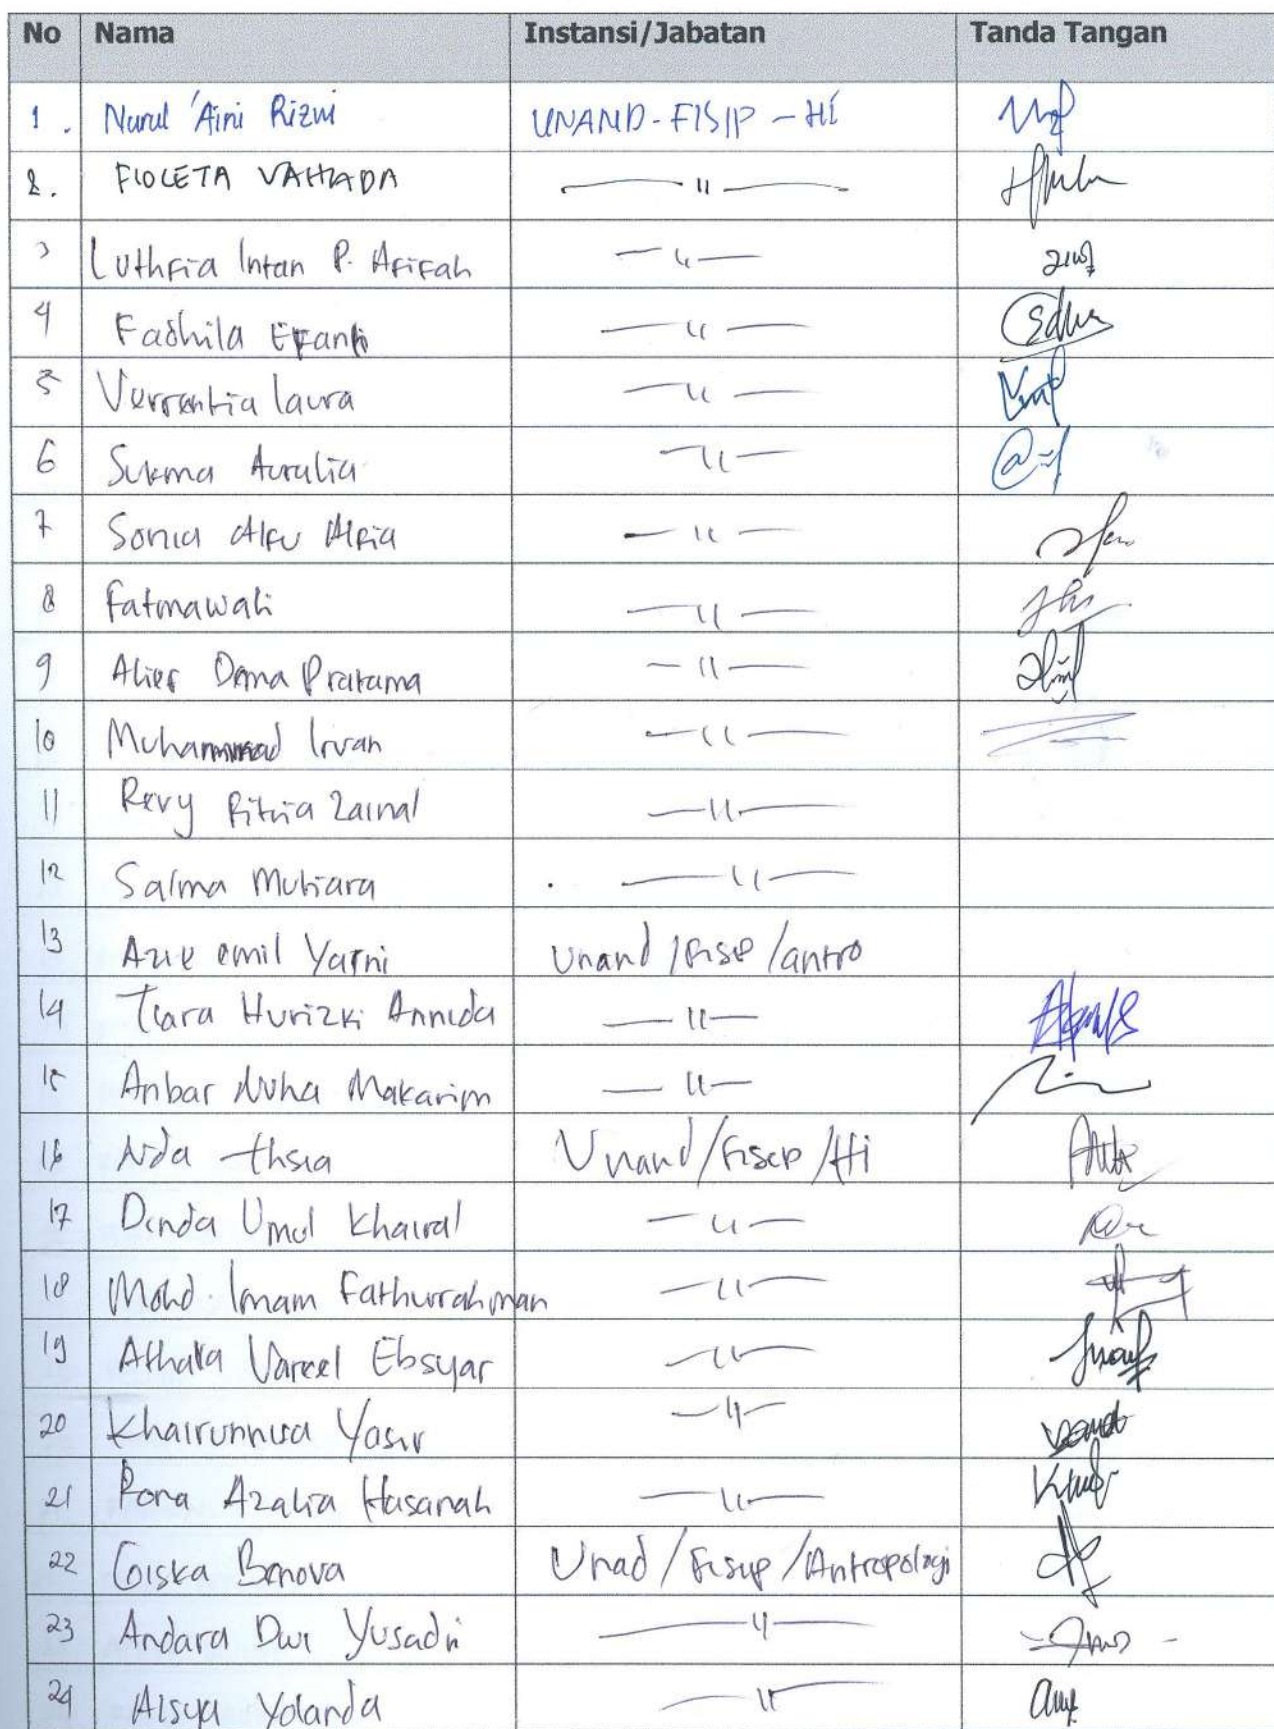 No Nama Instansi/Jabatan Tanda Tangan
1. Nurul 'Aini Rizwi UNAND-FISIP-HI
2. FIOLETA VAHRADA — " —
3 Luthfia Intan P. Afifah — " —
4 Fadhila Efanti — " —
5 Verrentia laura — " —
6 Sukma Auralia — " —
7 Sonia Alfu Alfia — " —
8 Fatmawati — " —
9 Alief Dama Pratama — " —
10 Muhammad Irvan — " —
11 Revy Fitria Zainal — " —
12 Salma Mutiara — " —
13 Azie emil Yarni Unand/Fisip/antro
14 Tiara Hurizki Annida — " —
15 Anbar Nuha Makarim — " —
16 Aida Unand/Fisip/Hi
17 Dinda Umul Khairal — " —
18 Mohd. Imam Fathurrahman — " —
19 Athala Varcel Ebsyar — " —
20 Khairunnisa Yasir — " —
21 Rona Azalia Hasanah — " —
22 Giska Benova Unad/Fisip/Antropologi
23 Andara Dwi Yusadri — " —
24 Alsya Yolanda — " —